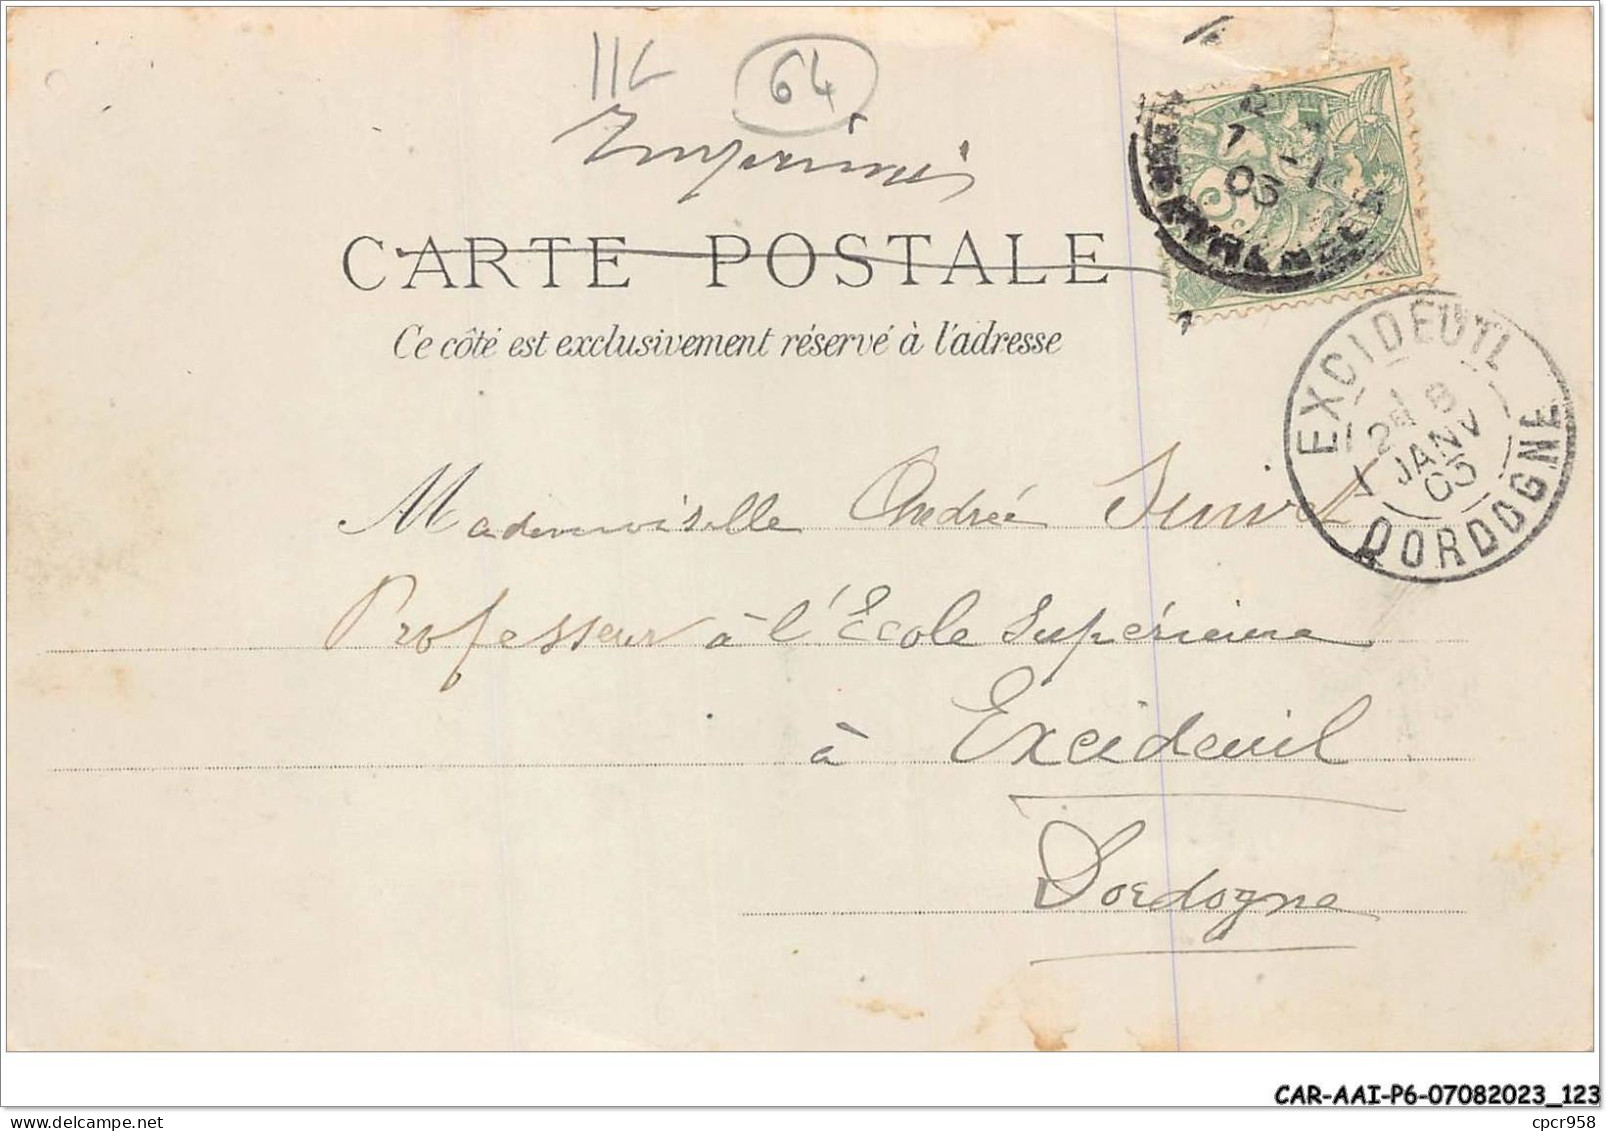 11L 64
Imprimés
CARTE POSTALE
Ce côté est exclusivement réservé à l'adresse
7 -1
03
EXCIDEUIL
12E 8
JANV
03
DORDOGNE
Mademoiselle Andrée
Professeur à l'École Supérieure
à Excideuil
Dordogne
CAR-AAI-P6-07082023_123
www.delcampe.net
cpcr958